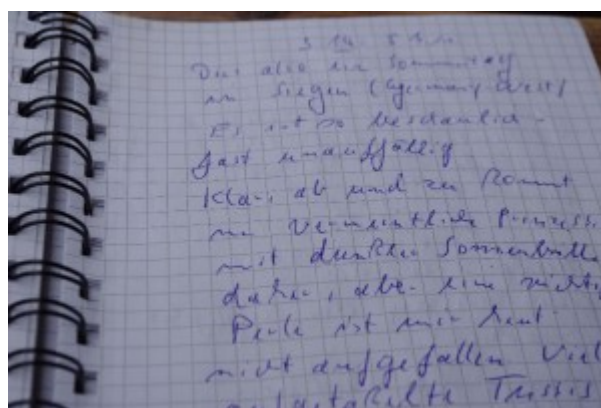 Das also ein Sommertag
in Siegen (Germany-West)
Es ist so beschaulich -
fast unauffällig
Klar, ab und zu kommt
ne vermeintliche Prinzess
mit dunkler Sonnenbrille
daher, aber eine richti
Perle ist mir heut
nicht aufgefallen Viel